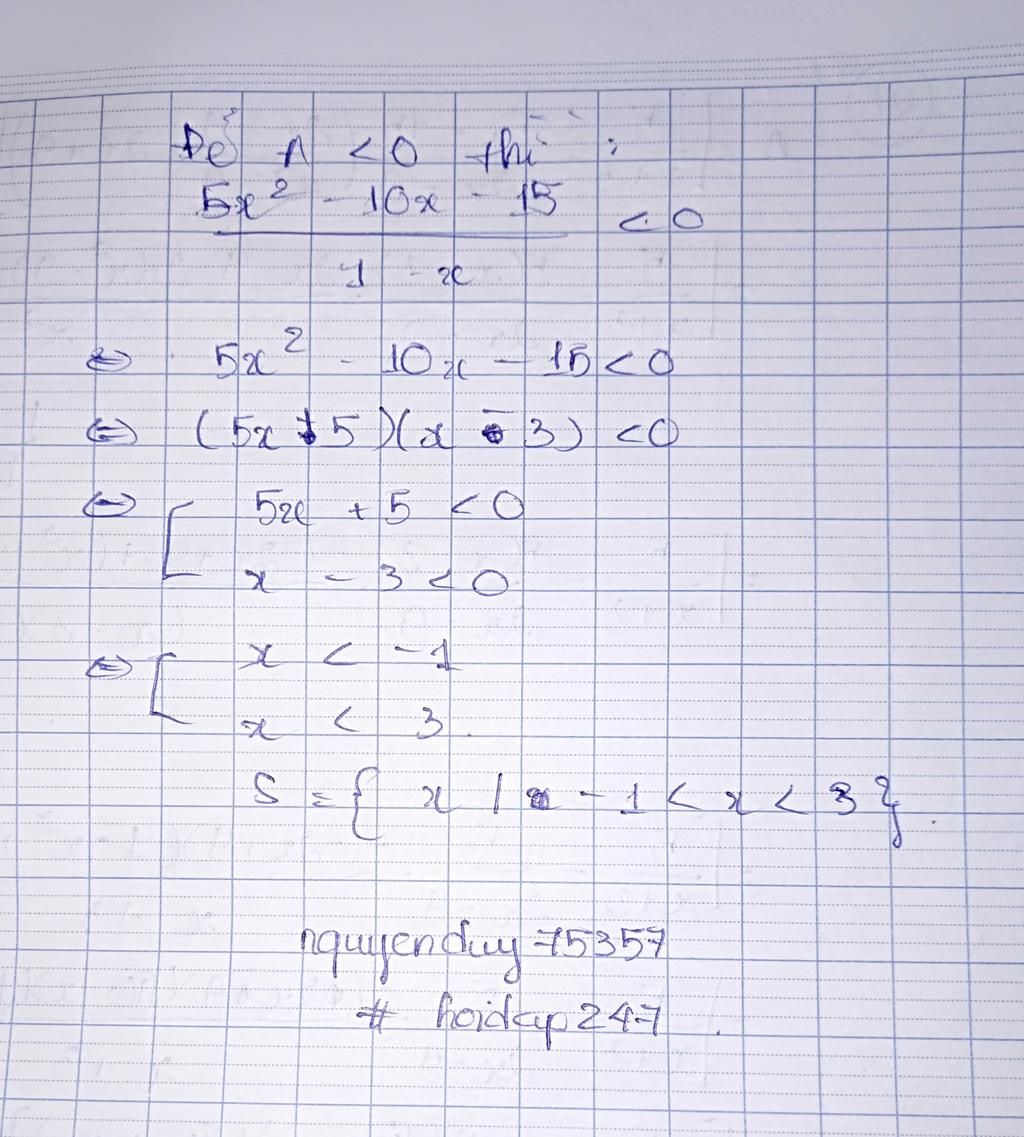 Để A < 0 thì :
5x² - 10x - 15 < 0
1 - x
⇔ 5x² - 10x - 15 < 0
⇔ (5x + 5)(x - 3) < 0
⇔ [ 5x + 5 < 0
x - 3 < 0
⇔ [ x < -1
x < 3.
S = { x | -1 < x < 3 }.
nguyenduy75357
# hoidap247.